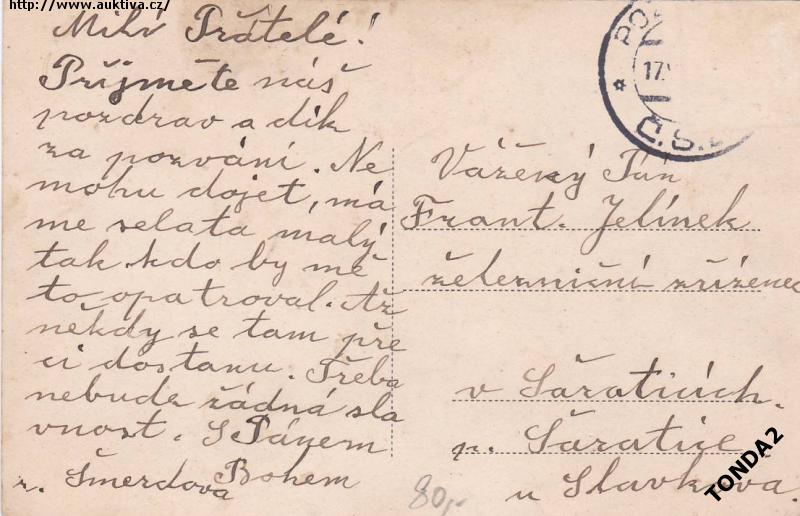 http://www.auktiva.cz/
Milí Přátelé!
Příjměte náš
pozdrav a dík
za pozvání. Ne
mohu dojet, má
me selata malý
tak kdo by mě
to opatroval. Až
někdy se tam pře
ci dostanu. Třeba
nebude řádná sla
vnost. S Pánem
Bohem
r. Šmerdova
80,-
17.
Č.S.
Vážený Pán
Frant. Jelínek
železniční zřízenec
v Šaraticích.
p. Šaratice
u Slavkova.
TONDA2